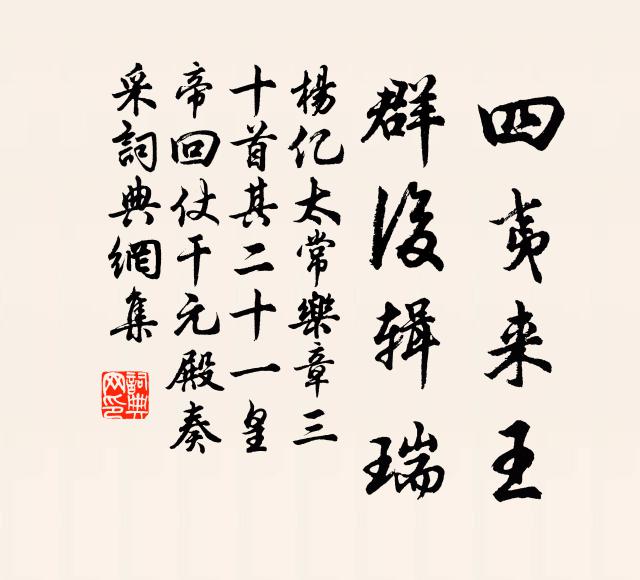 四夷来王
群後辑瑞
楊亿太常樂章三
十首其二十一皇
帝回仗干元殿奏
采詞典網集
詞典
网印